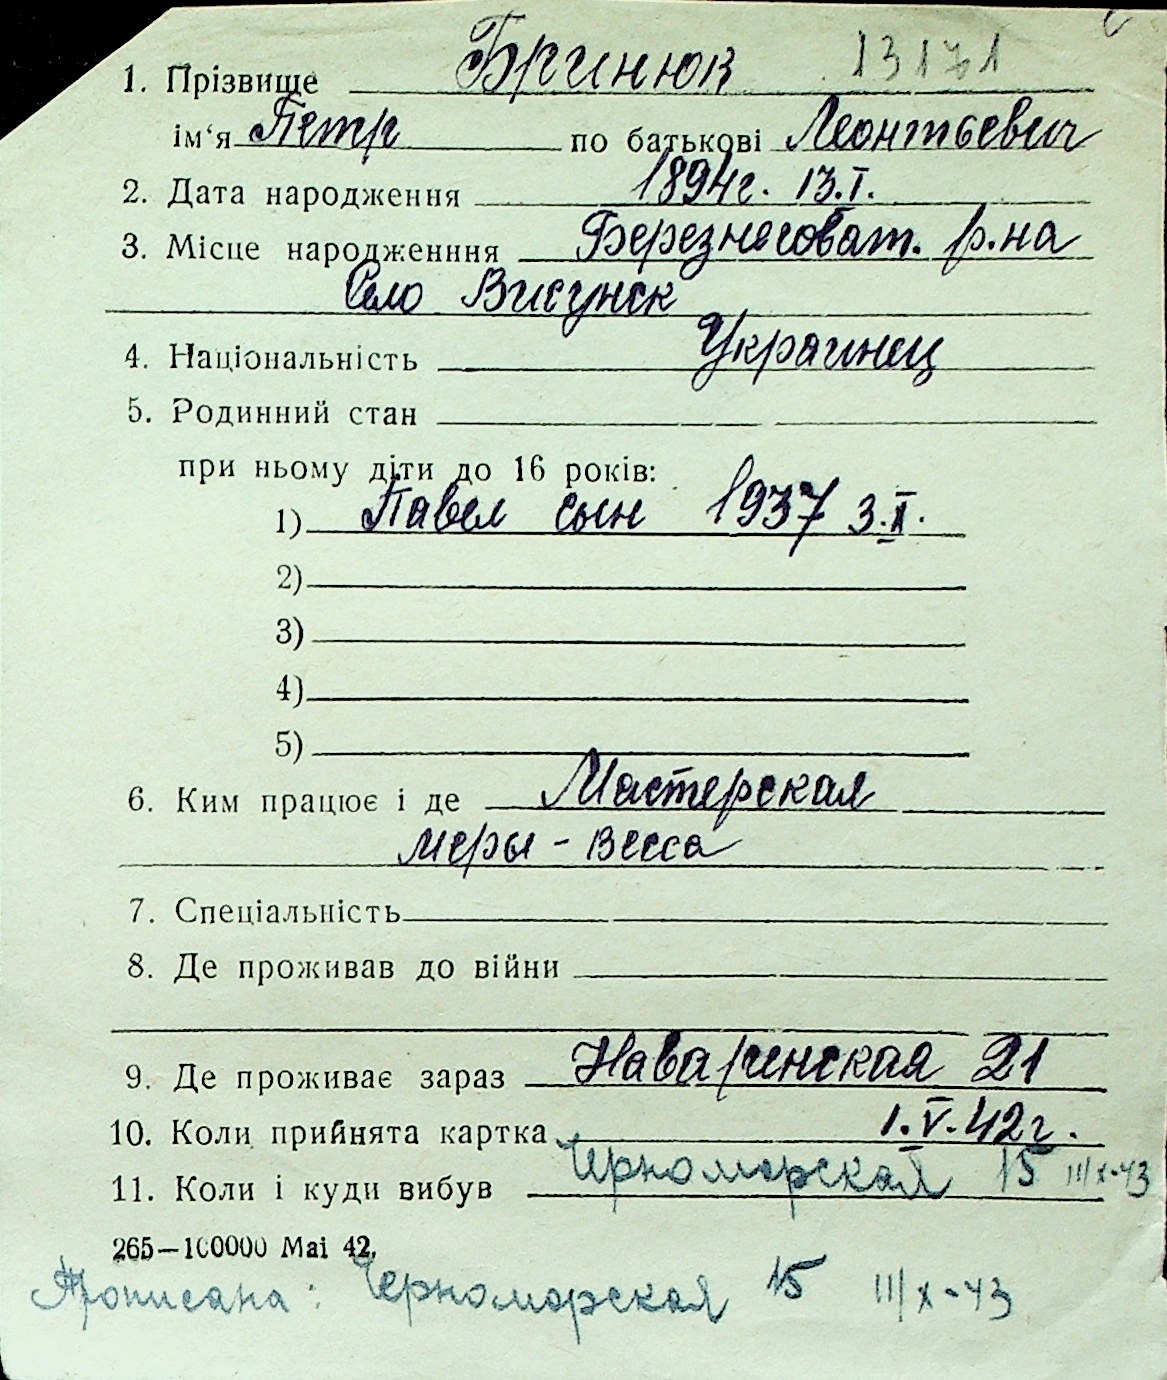 1. Прізвище Бринюк 13171
ім'я Петр по батькові Леонтьевич
2. Дата народження 1894г. 13.I.
3. Місце народженння Березнеговат. р.на
Село Висунск
4. Національність Украинец
5. Родинний стан
при ньому діти до 16 років:
1) Павел сын 1937 3.X.
2)
3)
4)
5)
6. Ким працює і де Мастерская
меры - Весса
7. Спеціальність
8. Де проживав до війни
9. Де проживає зараз Наваринская 21
10. Коли прийнята картка 1.V.42г.
11. Коли і куди вибув Черноморская 15 III/X-43
265—100000 Mai 42.
Прописана: Черноморская 15 III/X-43